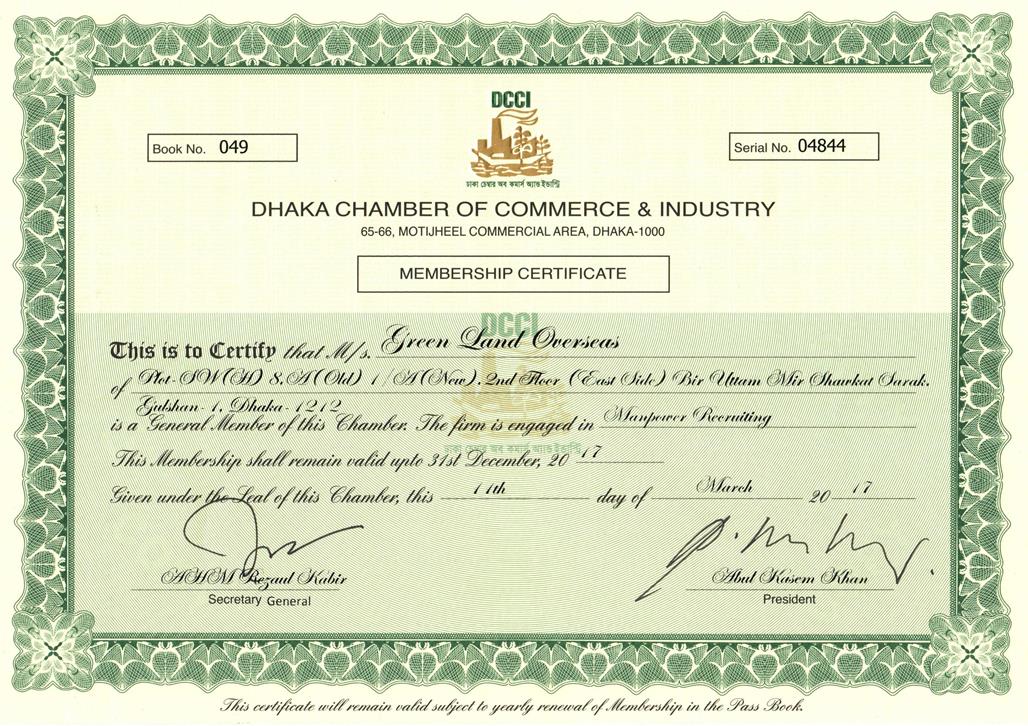 DCCI
ঢাকা চেম্বার অব কমার্স অ্যান্ড ইন্ডাস্ট্রি
Book No. 049
Serial No. 04844
DHAKA CHAMBER OF COMMERCE & INDUSTRY
65-66, MOTIJHEEL COMMERCIAL AREA, DHAKA-1000
MEMBERSHIP CERTIFICATE
DCCI
This is to Certify that M/s. Green Land Overseas
of Plot-SW(H) 8, A(Old) 1/A(New), 2nd Floor (East Side) Bir Uttam Mir Shawkat Sarak,
Gulshan-1, Dhaka-1212
is a General Member of this Chamber. The firm is engaged in Manpower Recruiting
ঢাকা চেম্বার অব কমার্স অ্যান্ড ইন্ডাস্ট্রি
This Membership shall remain valid upto 31st December, 20 17
Given under the Seal of this Chamber, this 11th day of March 20 17
AHM Rezaul Kabir
Secretary General
Abul Kasem Khan
President
This certificate will remain valid subject to yearly renewal of Membership in the Pass Book.